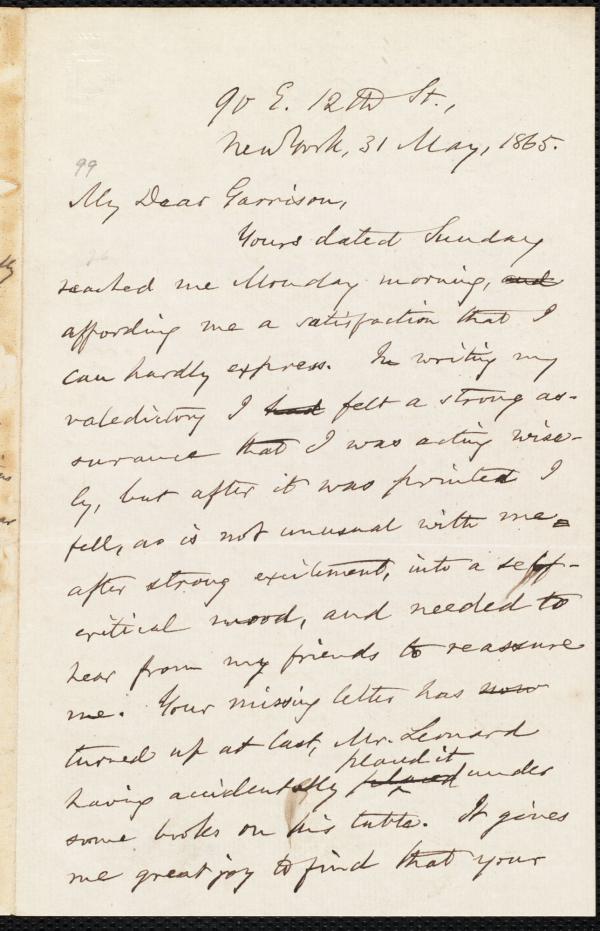 90 E. 12th St.,
New York, 31 May, 1865.
99
My Dear Garrison,
Yours dated Sunday
reached me Monday morning, and
affording me a satisfaction that I
can hardly express. In writing my
valedictory I had felt a strong as-
surance that I was acting wise-
ly, but after it was printed I
fell, as is not unusual with me
after strong excitement, into a self-
critical mood, and needed to
hear from my friends to reassure
me. Your missing letter has now
turned up at last, Mr. Leonard
placed it
having accidentally placed under
some books on his table. It gives
me great joy to find that your